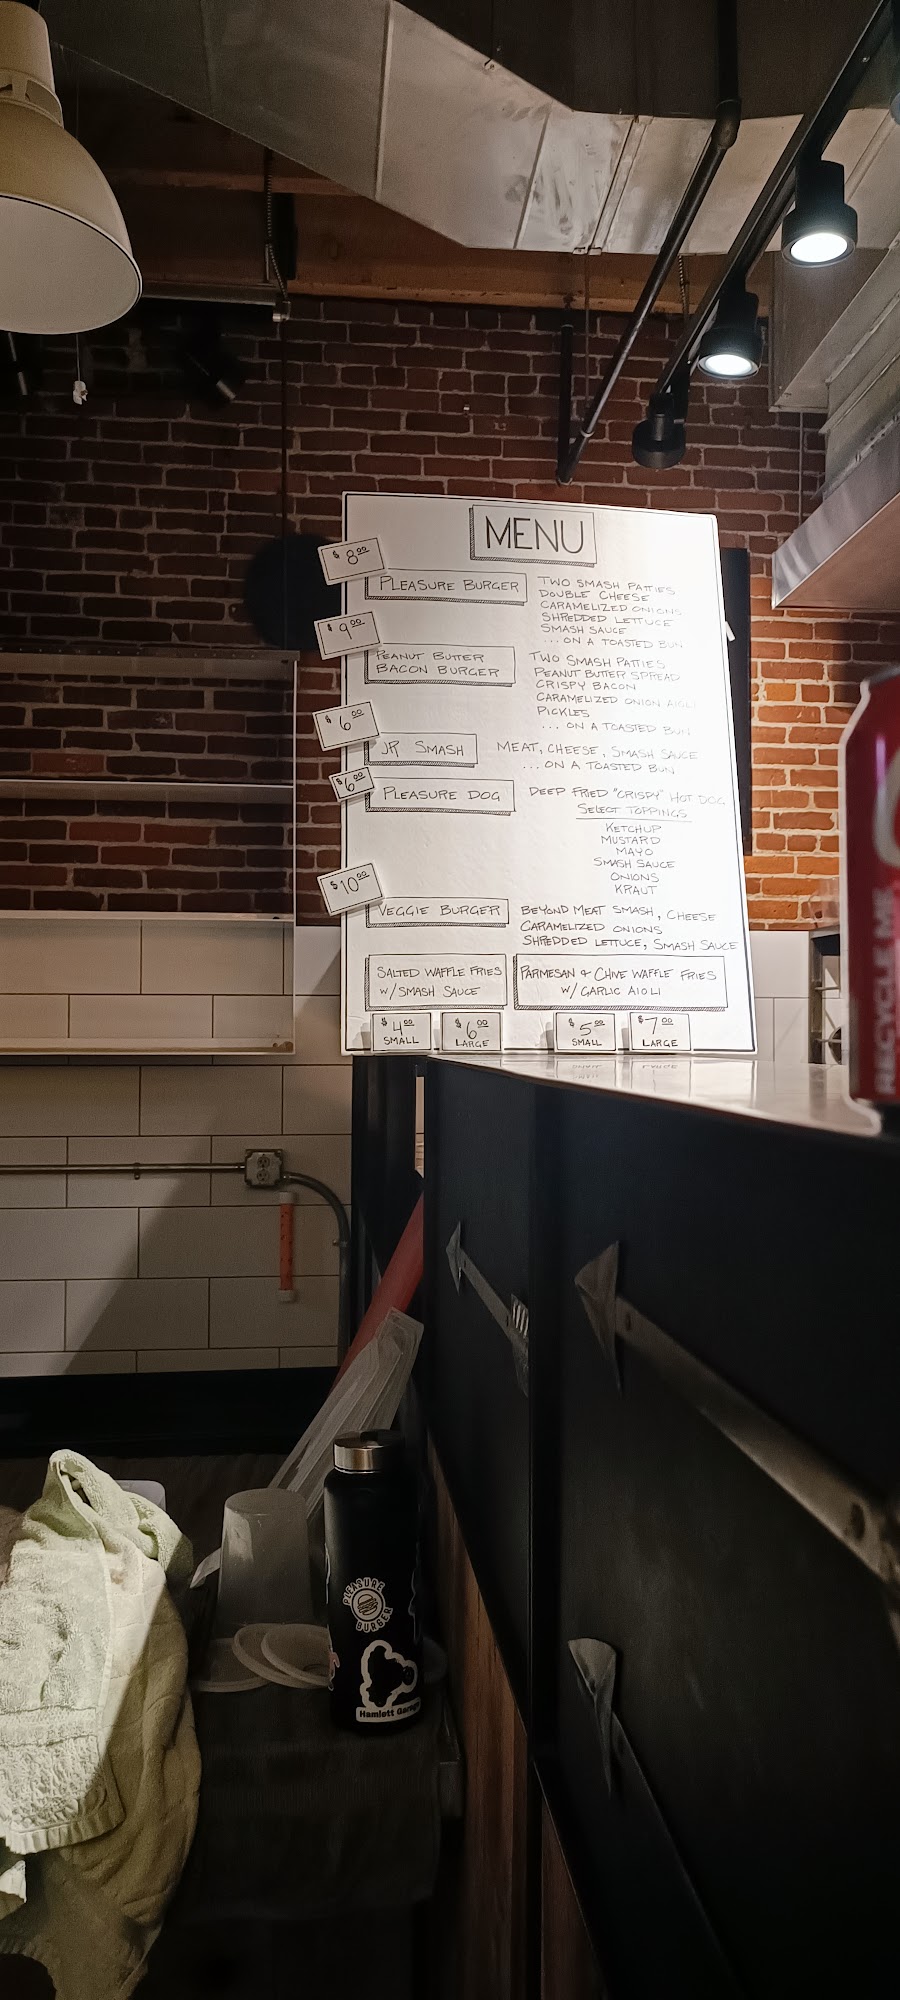 MENU
$8.00
PLEASURE BURGER
TWO SMASH PATTIES
DOUBLE CHEESE
CARAMELIZED ONIONS
SHREDDED LETTUCE
SMASH SAUCE
...ON A TOASTED BUN
$9.00
PEANUT BUTTER
BACON BURGER
TWO SMASH PATTIES
PEANUT BUTTER SPREAD
CRISPY BACON
CARAMELIZED ONION AIOLI
PICKLES
...ON A TOASTED BUN
$6.00
JR SMASH
MEAT, CHEESE, SMASH SAUCE
...ON A TOASTED BUN
$6.00
PLEASURE DOG
DEEP FRIED "CRISPY" HOT DOG
SELECT TOPPINGS
KETCHUP
MUSTARD
MAYO
SMASH SAUCE
ONIONS
KRAUT
$10.00
VEGGIE BURGER
BEYOND MEAT SMASH, CHEESE
CARAMELIZED ONIONS
SHREDDED LETTUCE, SMASH SAUCE
SALTED WAFFLE FRIES
W/SMASH SAUCE
PARMESAN & CHIVE WAFFLE FRIES
W/ GARLIC AIOLI
$4.00
SMALL
$6.00
LARGE
$5.00
SMALL
$7.00
LARGE
RECYCLE ME
PLEASURE
BURGER
Hamlett Garage